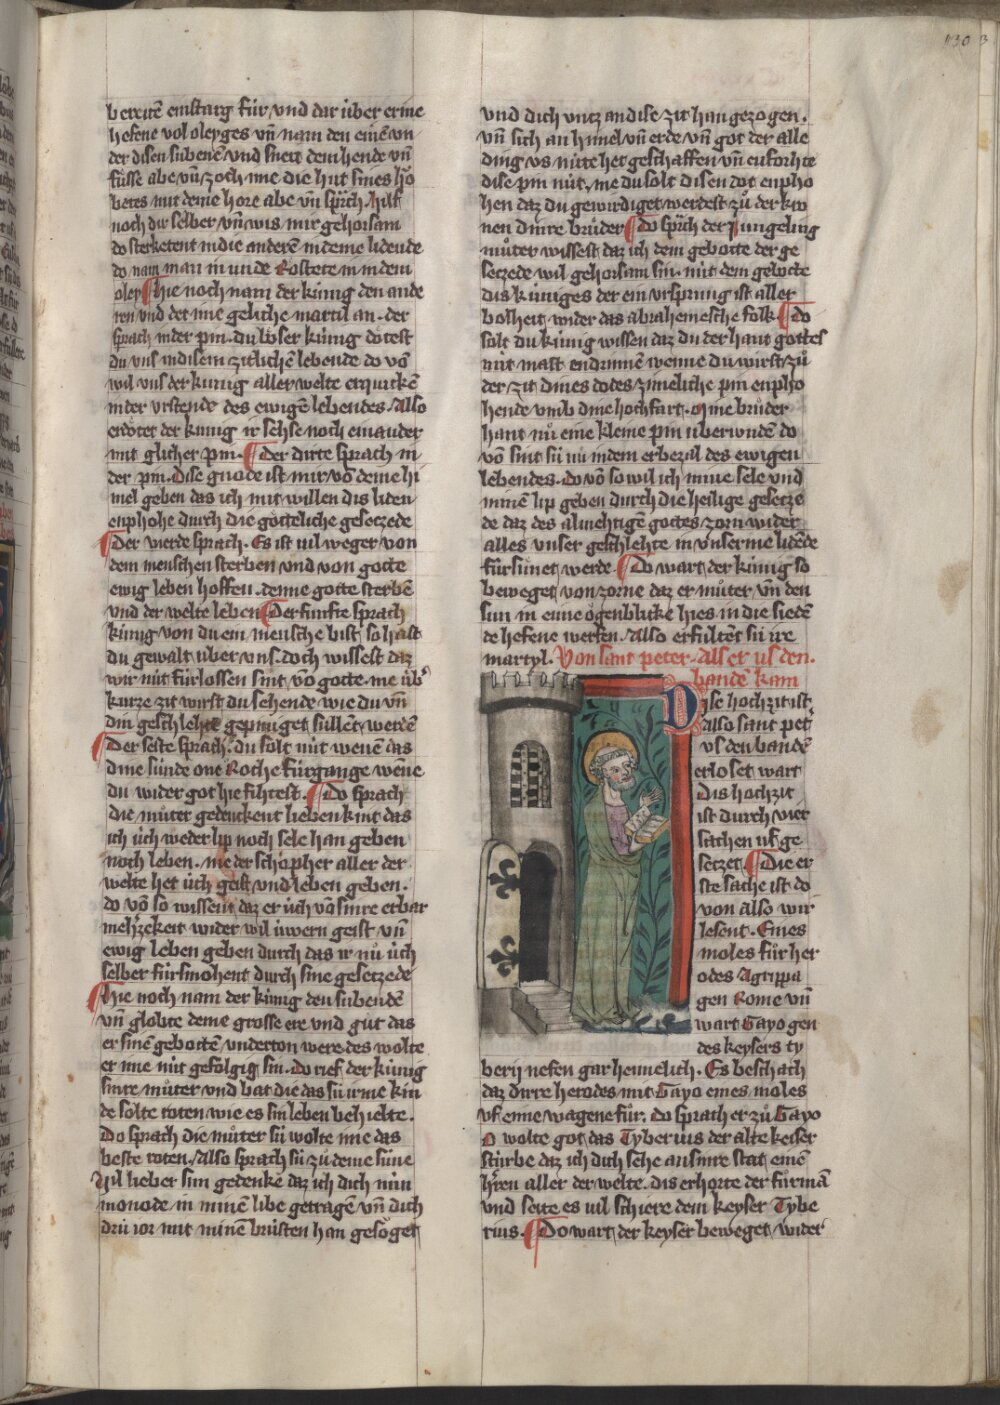 130
bereitē einstarg für vnd dar über eríne
hefene vol oleyges vn̄ nam den einē vn
der disen sübenē vnd sneit dem hende vn̄
füsse abe vn̄ zoch ime die hut sines hō
betes mit deme hore abe vn̄ sprach hilf
noch dir selber vn̄ wis mir gehorsam
do sterketent in die anderē in deme lidende
do nam man in unde Rostete in in dem
oley hie noch nam der künig den ande
ren vnd det ime geliche martil an. der
sprach in der pin. du böser künig do test
du vns in disem zitlichē lebende do vō
wil vns der kunig aller welte erquickē
in der vrstende des ewigē lebendes. Also
erdöter der kunig ir sehse noch einander
mit glicher pin. der dirte sprach in
der pin. Dise gnode ist mir vō deme hi
mel geben das ich mit willen dis liden
enphohe durch die götteliche gesetzede
der vierde sprach. Es ist vil weger von
dem menschen sterben vnd von gotte
ewig leben hoffen. denne gotte sterbē
vnd der welte leben Der fünfte sprach
künig von du ein mensche bist so hast
du gewalt über vns. doch wissest daz
wir nüt fürlossen sint vō gotte. me üb̄
kurze zit wirst du sehende wie du vn̄
din geschlehte gepiniget süllēt werdē
Der seste sprach. du solt nüt wenē das
dine sünde one Roche fürgange wēne
du wider got hie fihtest. Do sprach
die müter gedenckent lieben kint das
ich üch weder lip noch sele han geben
noch leben. me der schöpher aller der
welte het üch geist vnd leben geben.
do vō so wissent daz er üch vō sinre erbar
mehrzekeit wider wil üwern geist vn̄
ewig leben geben durch das ir nü üch
selber fürsmohent durch sine gesetzede
hie noch nam der künig den sübendē
vn̄ globte deme grosse ere vnd güt das
er sinē gebottē vnderton were. des wolte
er ime nüt gefölgig sin. do rief der künig
sinre müter vnd bat die das sü irme kin
de solte roten wie es sin leben behielte.
Do sprach die müter sü wolte ime das
beste roten. Also sprach sü zü deme süne
Vil lieber sun gedenke daz ich dich nün
monode in minē libe getragē vn̄ dich
drü ior mit minē brüsten han gesöget
vnd dich vntz an dise zit han gezogen.
vn̄ sich an himel vn̄ erde vn̄ got der alle
ding vs nüte het geschaffen vn̄ enförhte
dise pin nüt. me du solt disen dot enpho
hen daz du gewirdiget werdest zü der kro
nen dinre brüder Do sprach der jungeling
müter wissest daz ich dem gebotte der ge
setzede wil gehorsam sin. nüt dem gebotte
dis küniges der ein vrsprung ist aller
bosheit wider das abrahemesche folk Do
solt du künig wissen daz du der hant gottes
nüt maht endrinnē wenne du wirst zü
der zit dines dodes zimeliche pin enpho
hende vmb dine hochfart. Mine brüder
hant nü eine kleine pin überwundē do
vō sint sü nü in dem erbezal des ewigen
lebendes. do vō so wil ich mine sele vnd
minē lip geben durch die heilige gesetze
de daz des almehtigē gottes zorn wider
alles vnser geschlehte in vnserme lidēde
fürsünet werde. Do wart der künig so
beweget von zorne daz er müter vn̄ den
sun in eime ögenblicke hies in die sieden
de hefene werfen. Also erfültēt sü ire
martyl. Von sant peter. als er vs den.
banden kam
Dise hochzit ist
also sant pet̄
vs den bandē
erloset wart
Dis hochzit
ist durch vier
sachen vf ge
setzet. Die er
ste sache ist do
von also wir
lesent. Eines
moles für her
odes Agrippa
gen Rome vn̄
wart Gayo gen
des keysers ty
berij nefen gar heimelich. Es beschach
daz dirre herodes mit Gayo eines moles
vf eime wagene für. do sprach er zü Gayo
O wolte got das Tyberius der alte keiser
stürbe daz ich dich sehe an sinre stat einē
h̄ren aller der welte. dis erhorte der fürmā
vnd seite es vil schiere dem keyser Tybe
rius. Do wart der keyser beweget wider